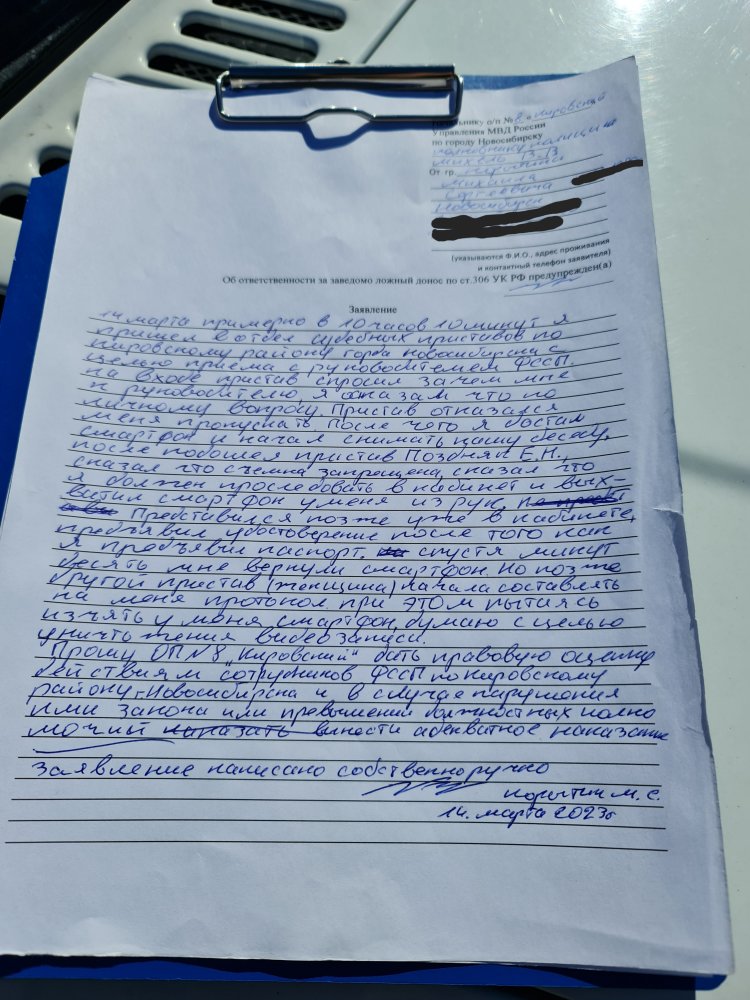 Начальнику о/п № 8 "Кировский
Управления МВД России
по городу Новосибирску
полковнику полиции
Михель В.В
От гр. Корытина
Михаила
Сергеевича
Новосибирск
(указываются Ф.И.О., адрес проживания
и контактный телефон заявителя)
Об ответственности за заведомо ложный донос по ст.306 УК РФ предупрежден(а)
Заявление
14 марта примерно в 10 часов 10 минут я
пришел в отдел судебных приставов по
Кировскому району города Новосибирска с
целью приема с руководителем ФССП.
На входе пристав спросил зачем мне
к руководителю, я сказал что по
личному вопросу. Пристав отказался
меня пропускать после чего я достал
смартфон и начал снимать нашу беседу,
после подошел пристав Поздняк Е.Н.,
сказал что съемка запрещена, сказал что
я должен проследовать в кабинет и вых-
ватил смартфон у меня из рук,
Представился позже уже в кабинете,
предъявил удостоверение после того как
я предъявил паспорт, спустя минут
десять мне вернули смартфон. Но позже
другой пристав (женщина) начала составлять
на меня протокол при этом пытаясь
изъять у меня смартфон, думаю с целью
уничтожения видеозаписи.
Прошу ОП №8 "Кировский" дать правовую оценку
действиям сотрудников ФССП по Кировскому
району г.Новосибирска и в случае нарушения
ими закона или превышении должностных полно
мочий наказать вынести адекватное наказание
Заявление написано собственноручно
Корытин М. С.
14. марта 2023г